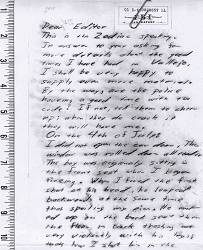 Dear Editor
This is the Zodiac speaking.
In answer to your asking for
more details about the good
times I have had in Vallejo,
I shall be very happy to
supply even more material.
By the way, are the police
having a good time with the
code? If not, tell them to cheer
up; when they do crack it
they will have me.
On the 4th of July
I did not open the car door. The
window was rolled down all ready.
The boy was origionaly sitting in
the front seat when I began
fireing. When I fired the first
shot at his head, he leaped
backwards at the same time
thus spoiling my aim. He
ed up on the back seat then
the floor in back thrashing out
very violently with his legs;
thats how I shot him in the